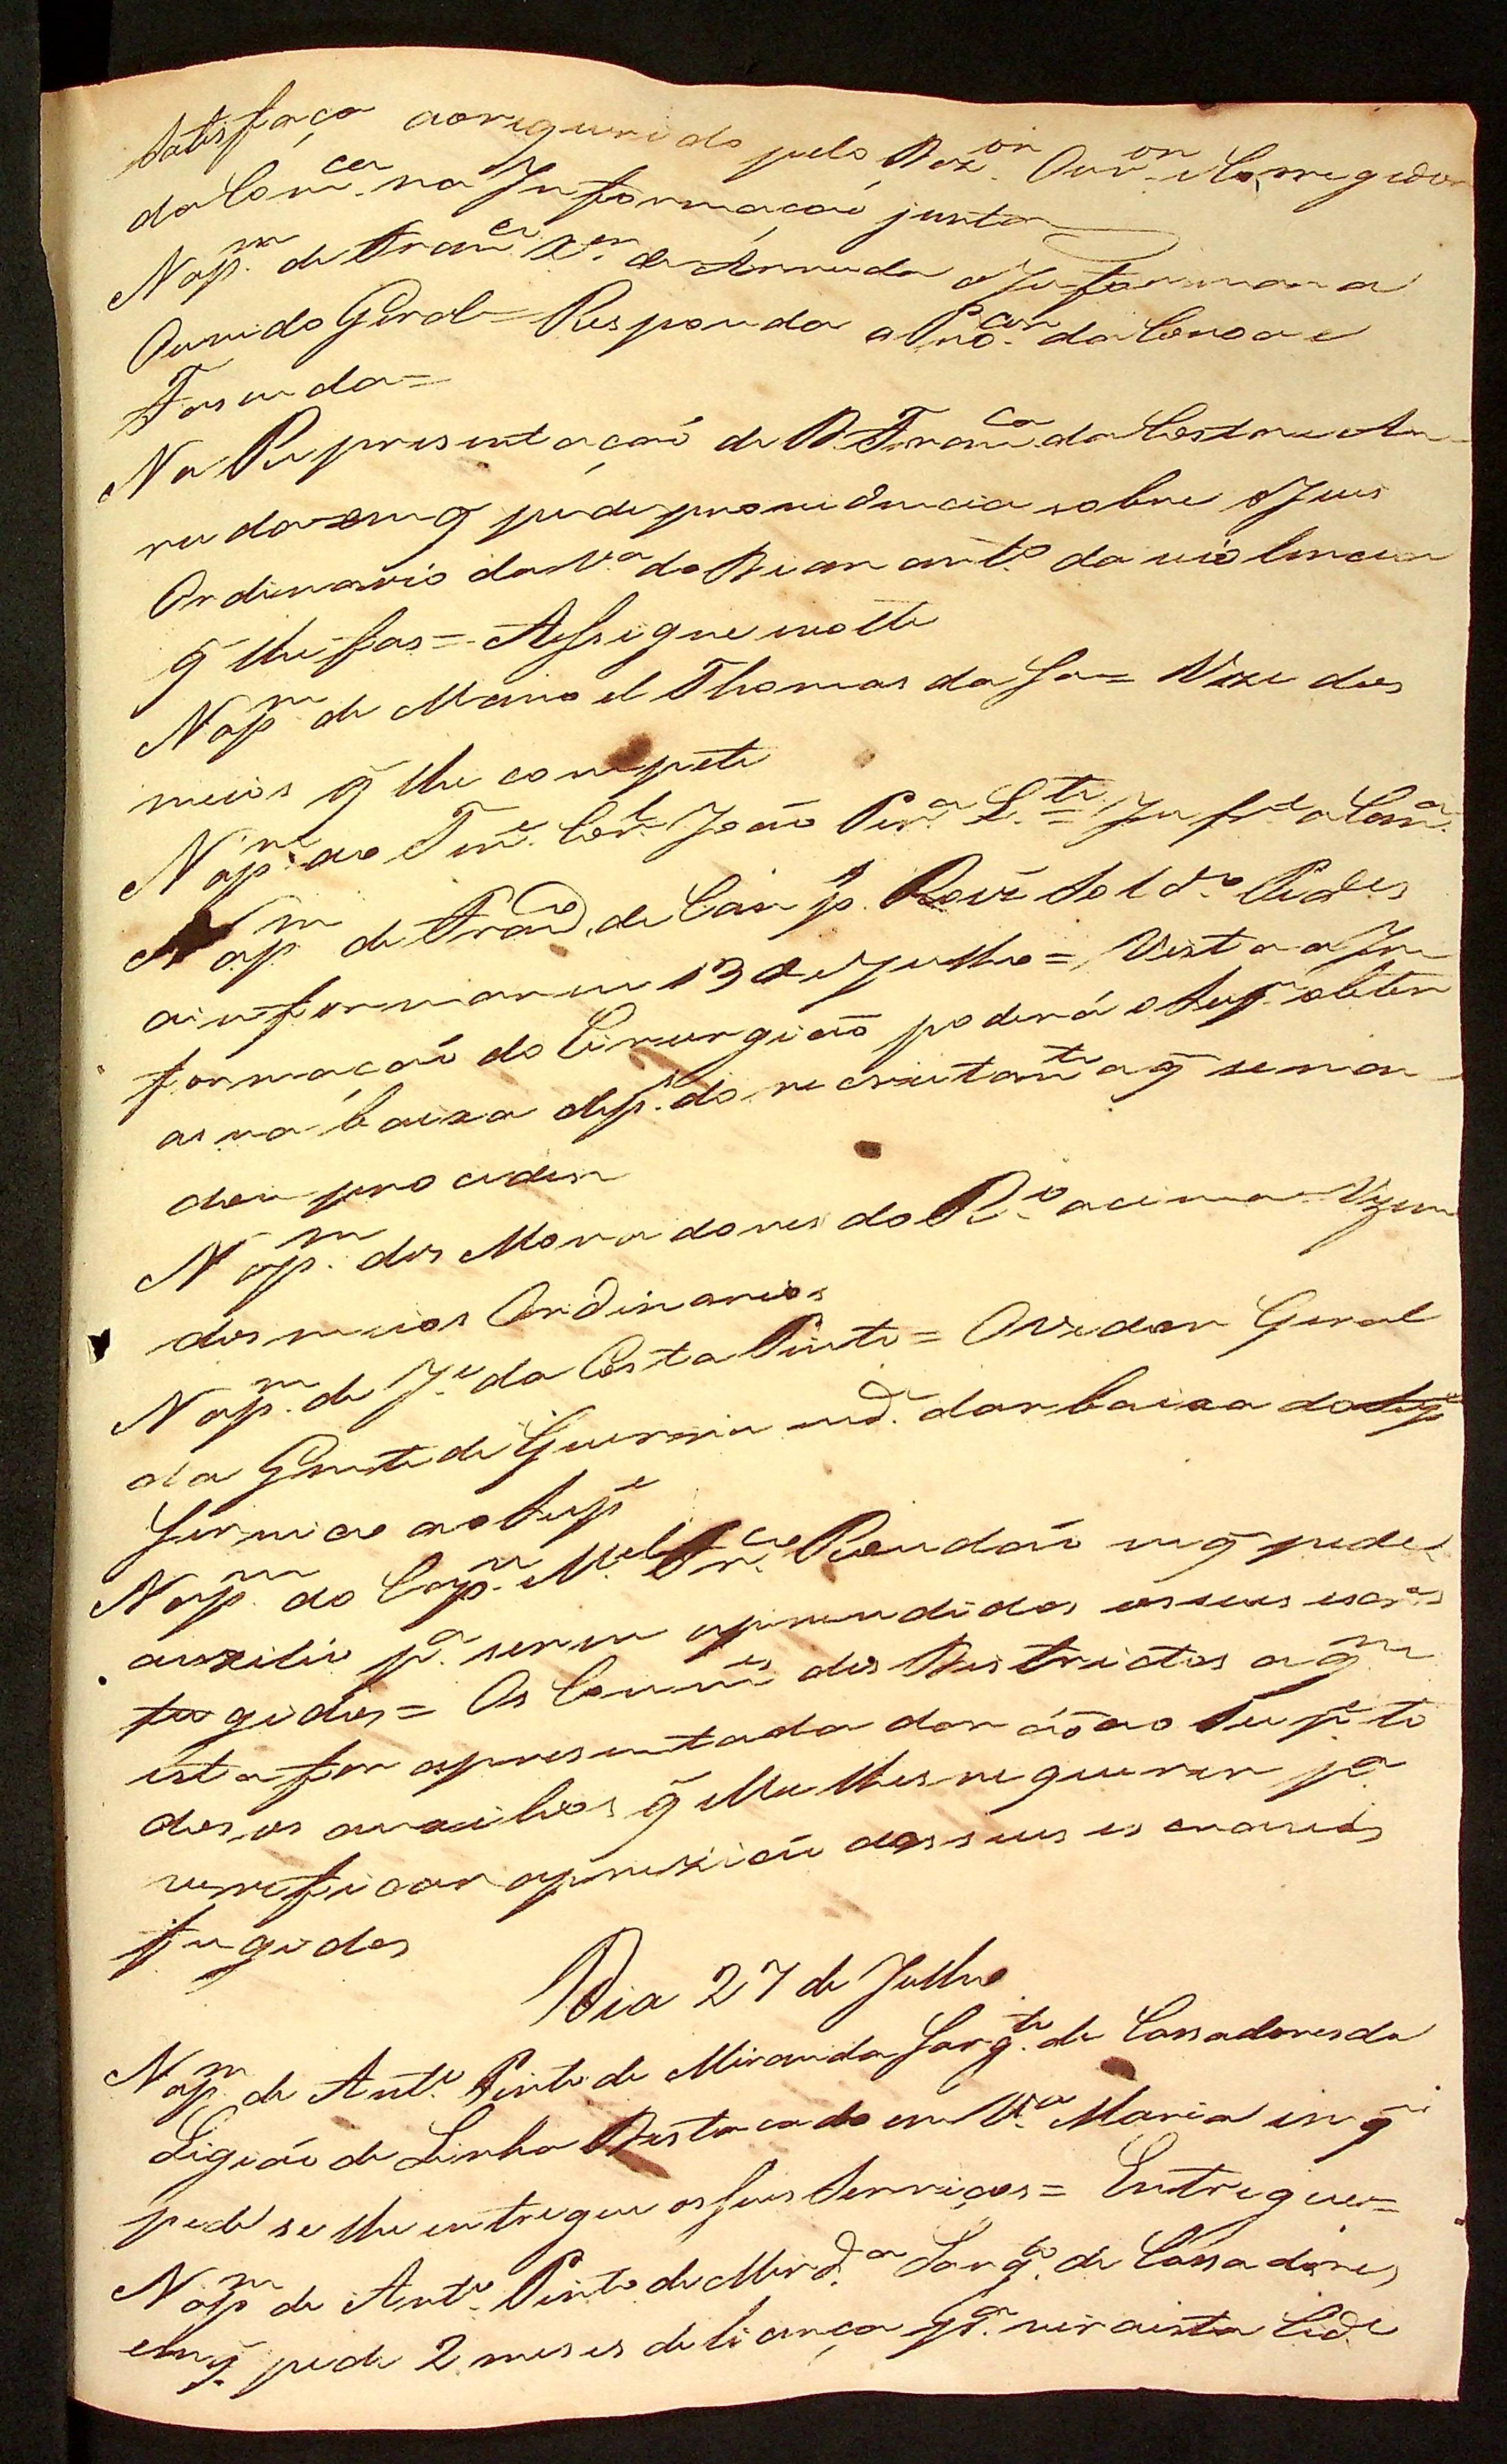 Satisfaça aorequerido pelo Dez.or Ouv.or e Corregedor
da Com.ca na Informaçaõ junta
N ap.m de Fran.ca X.er de Arruda o Informar a
Ouvido Geral = Responda o Pro.cor da Coroa e
Fasenda =
Na Representaçaõ de D. Fran.ca da Costa e Ar
ruda em q̃ pede providencia sobre o Juis
Ordinario da V.a do Diamant.o da violencia
q̃ lhe fas = Assigne volte
N ap.m de Manoel Thomas da Sa = Uze dos
meios q̃ lhe compete
N ap.m do Ten.e Cor.l João Per.a L.te Inf.e a Cam.a
N ap.m de Fran.co de Camp.s Sold.o Ped.es
ainformar em 13 de Julho = Vista a In
formaçaõ do Cirurgiaõ poderá o Sup.e obter
asua baixa dep.s do recrutam.to aq̃ se man
dou proceder
N ap.m dos Moradores do R.o acima Uzem
dos meios Ordinarios
N ap.m de J.e da Costa Pinto = O Vedor Geral
da Gente de Guerra m.de dar baixa do
Serviço ao Sup.e
N ap.m do Cap.m M.el Fr.co Rondaõ em q̃ pede
auxilio p.a serem aprendidos os seus escr.os
fugidos = Os Com.es dos Destrictos aq̃.m
esta for apresentada daráõ ao Sup.e to
dos os auxilios q̃ elle lhes requerer p.a
verificar aprezaõ dos seus escravos
fugidos
Dia 27 de Julho
N ap.m de Ant.o Pinto de Miranda Sarg.to de Cassadores da
Ligiaõ de Linha Destacado em V.a Maria em q̃
pede se lhe entregue os seus Serviços = Entregue =
N ap.m de Ant.o Pinto de Mird.a Sarg.to de Cassadores
em q̃ pede 2 meses de licença p.a vir a esta Cid.e